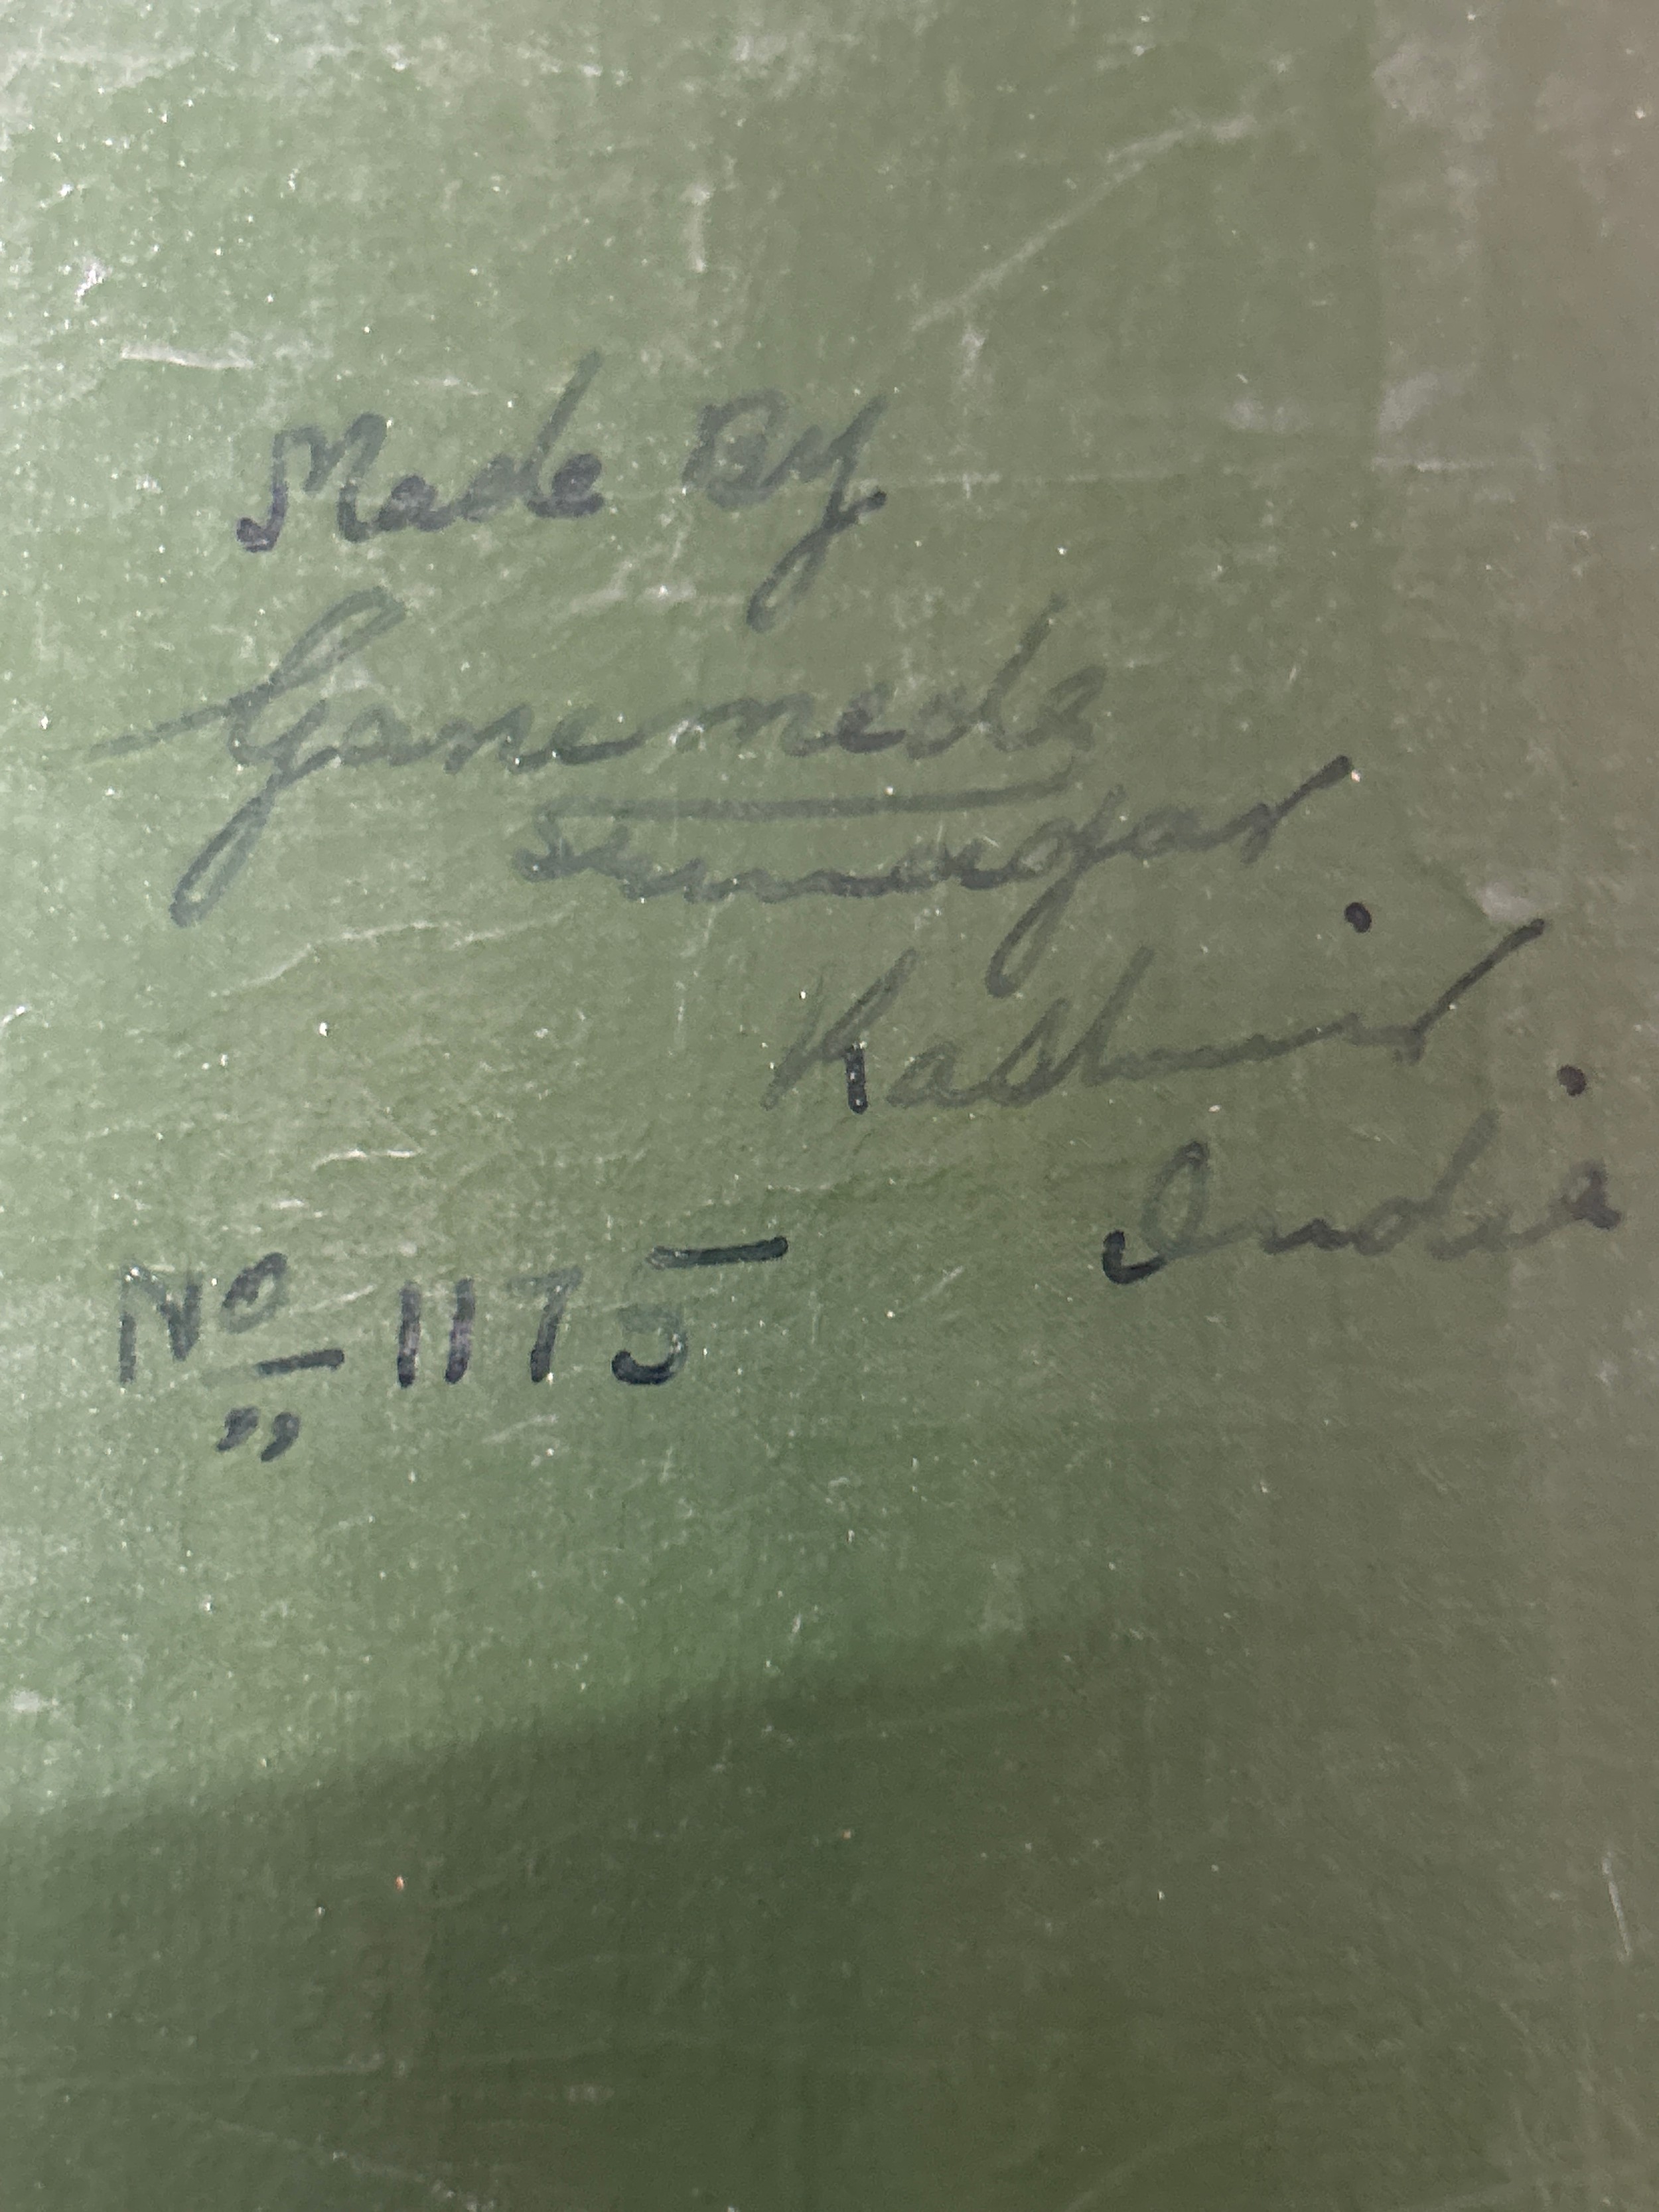 Made By
Ganemede
Srinagar
Kashmir
India
No 1175